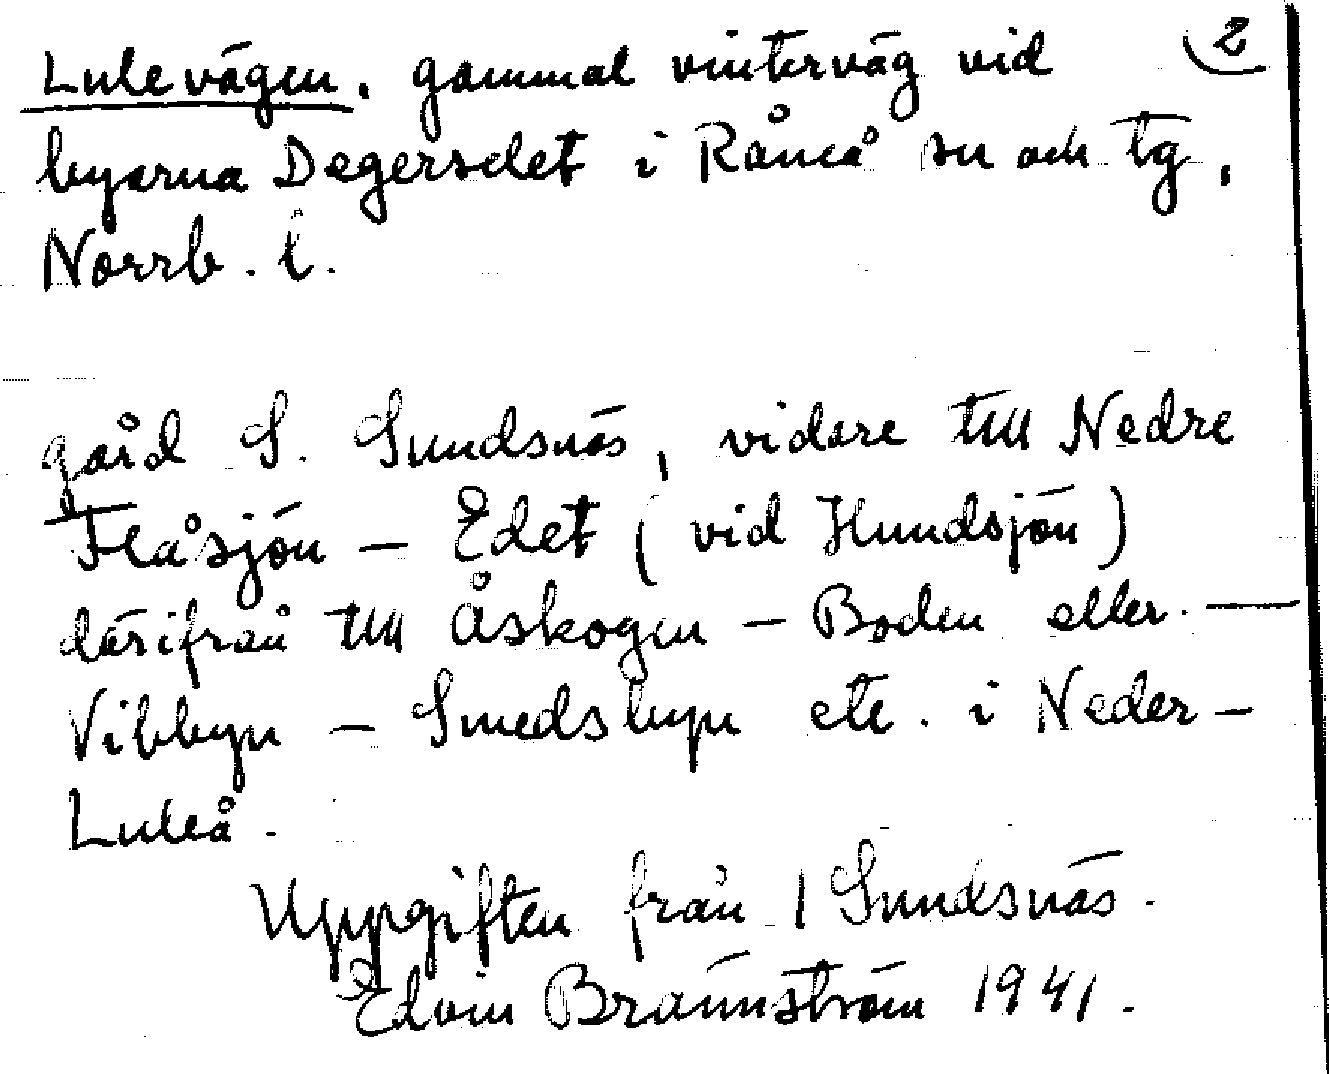 Lulevägen, gammal vinterväg vid 2
byarna Degerselet i Råneå sn och tg,
Norrb. l.
gård S. Sundsnäs, vidare till Nedre
Flåsjön – Edet (vid Hundsjön)
därifrån till Åskogen – Boden eller –
Vibbyn – Smedsbyn etc. i Neder-
Luleå.
Uppgiften från S Sundsnäs.
Edvin Brännström 1941.